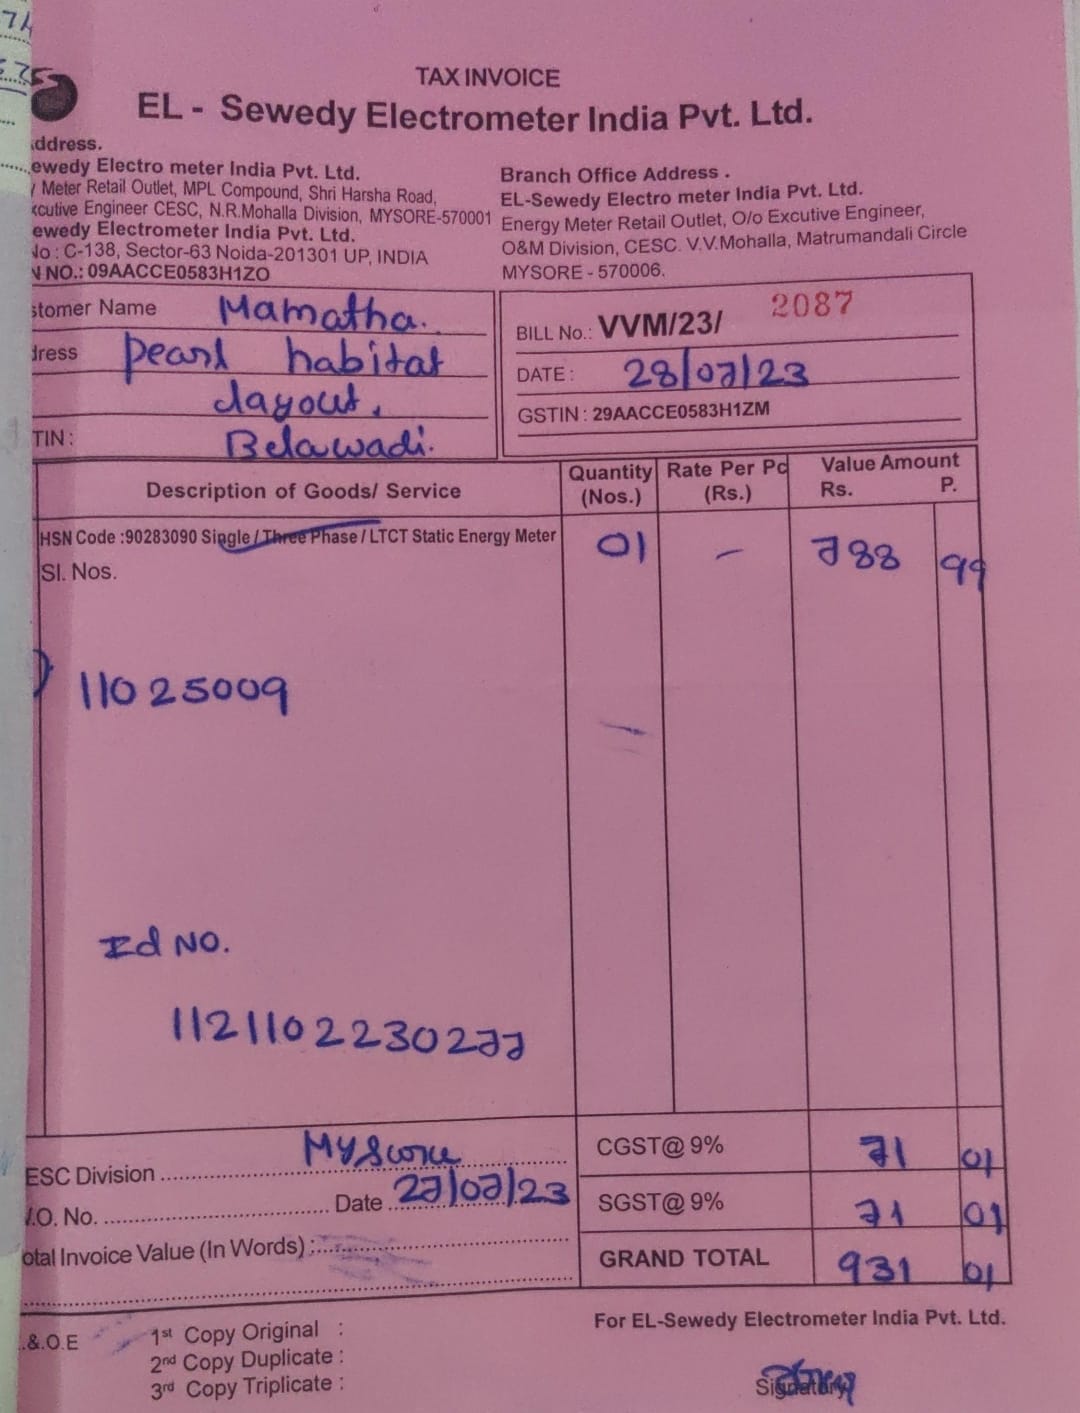 TAX INVOICE
EL - Sewedy Electrometer India Pvt. Ltd.
ddress.
ewedy Electro meter India Pvt. Ltd.
/ Meter Retail Outlet, MPL Compound, Shri Harsha Road,
xcutive Engineer CESC, N.R.Mohalla Division, MYSORE-570001
ewedy Electrometer India Pvt. Ltd.
No : C-138, Sector-63 Noida-201301 UP, INDIA
N NO.: 09AACCE0583H1ZO
Branch Office Address .
EL-Sewedy Electro meter India Pvt. Ltd.
Energy Meter Retail Outlet, O/o Excutive Engineer,
O&M Division, CESC. V.V.Mohalla, Matrumandali Circle
MYSORE - 570006.
stomer Name Mamatha.
dress pearl habitat
layout,
TIN : Belawadi.
BILL No.: VVM/23/ 2087
DATE : 28/07/23
GSTIN : 29AACCE0583H1ZM
Description of Goods/ Service Quantity (Nos.) Rate Per Pc (Rs.) Value Amount Rs. P.
HSN Code :90283090 Single / Three Phase / LTCT Static Energy Meter 01 – 788 99
Sl. Nos.
11025009
Id NO.
1121102230277
ESC Division Mysore
.O. No. Date 27/07/23
otal Invoice Value (In Words) :
CGST@ 9% 71 01
SGST@ 9% 71 01
GRAND TOTAL 931 01
.&.O.E
1st Copy Original :
2nd Copy Duplicate :
3rd Copy Triplicate :
For EL-Sewedy Electrometer India Pvt. Ltd.
Signatory